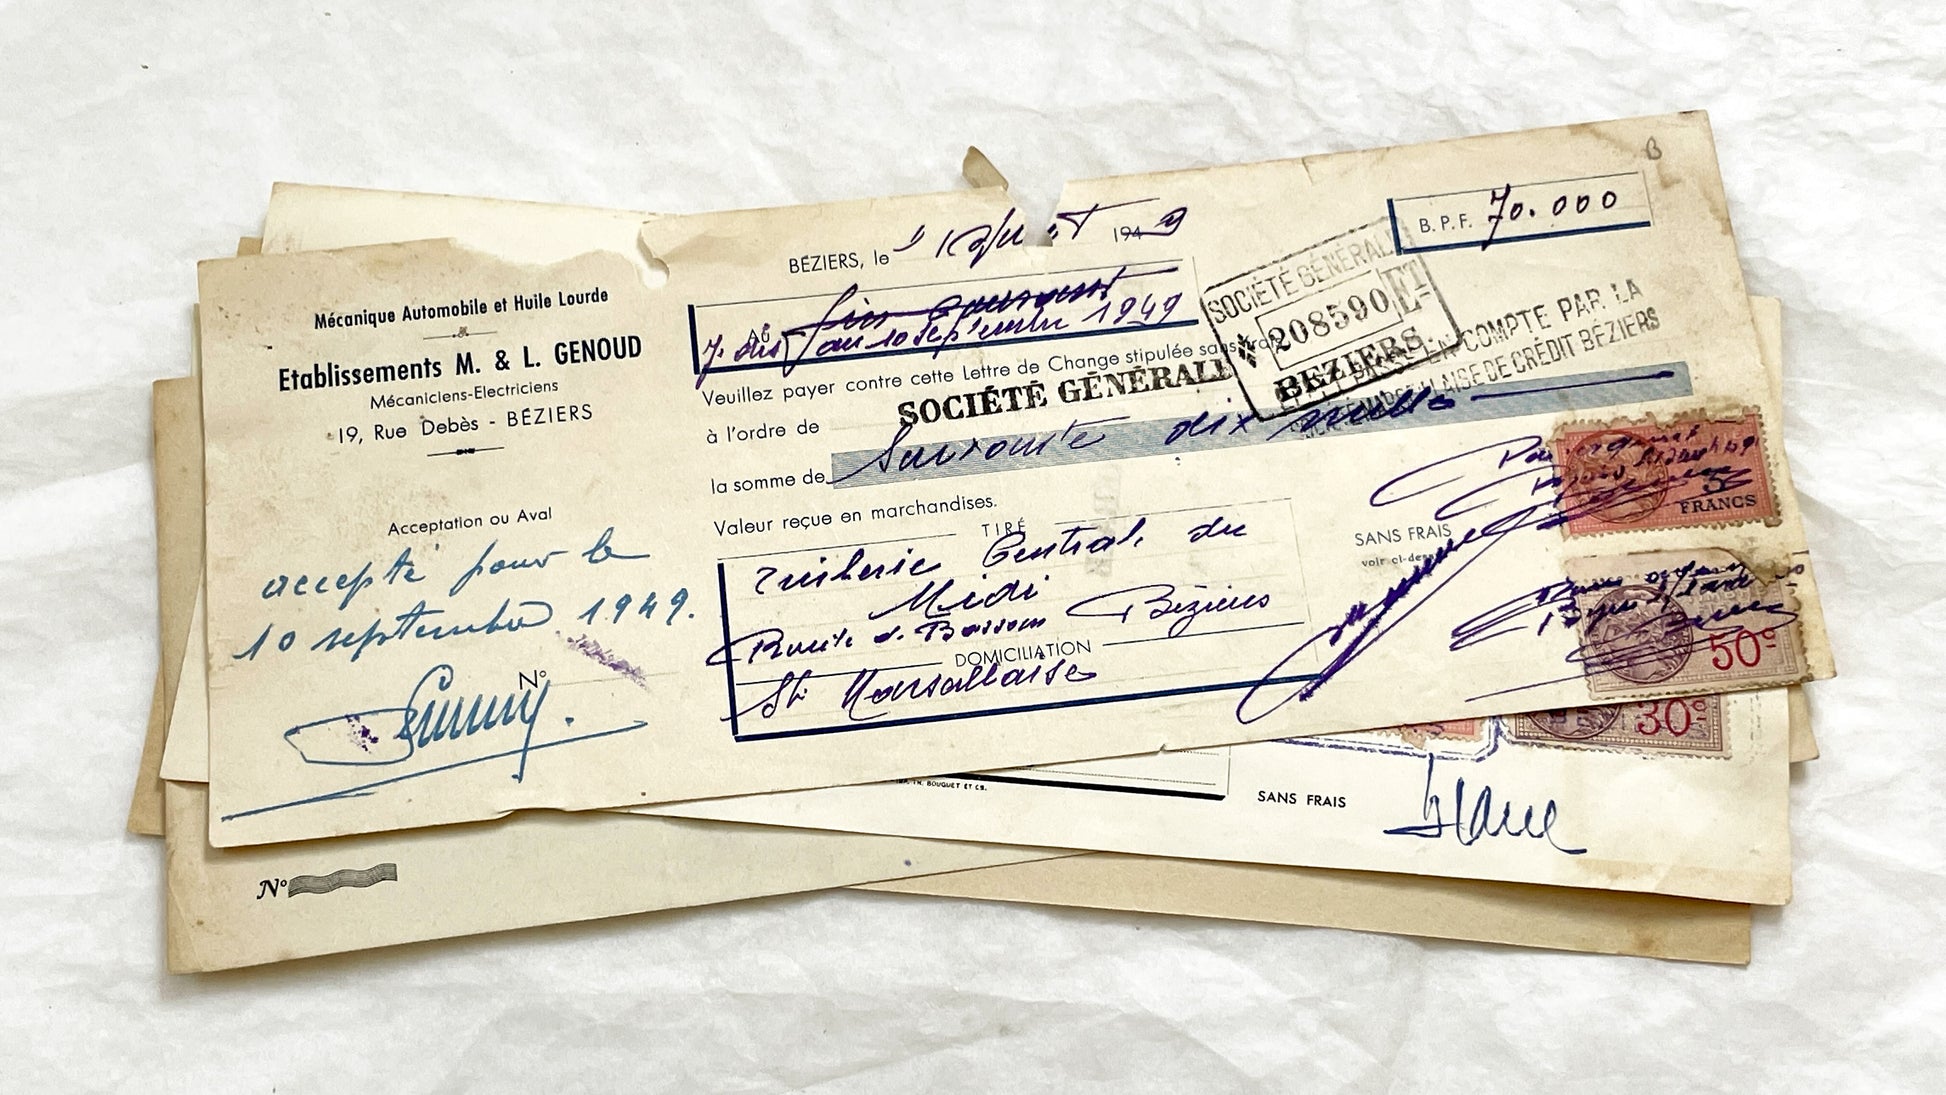 Mécanique Automobile et Huile Lourde
Etablissements M. & L. GENOUD
Mécaniciens-Electriciens
19, Rue Debès - BÉZIERS
Acceptation ou Aval
accepté pour le
10 septembre 1949.
Nº
BÉZIERS, le 1 Août 1949
B. P. F. 70.000
Au fin courant
au 10 Septembre 1949
Veuillez payer contre cette Lettre de Change stipulée sans frais
à l'ordre de SOCIÉTÉ GÉNÉRALE
la somme de Soixante dix mille
Valeur reçue en marchandises.
TIRÉ
Tuilerie Centrale du
Midi
Route de Bessan Béziers
DOMICILIATION
Sté Marseillaise
SOCIÉTÉ GÉNÉRALE
208590 ET
BEZIERS.
COMPTE PAR LA
MARSEILLAISE DE CRÉDIT BÉZIERS
SANS FRAIS
voir ci-dessus
FRANCS
50c
30
BOUQUET ET CIE.
SANS FRAIS
Nº
B